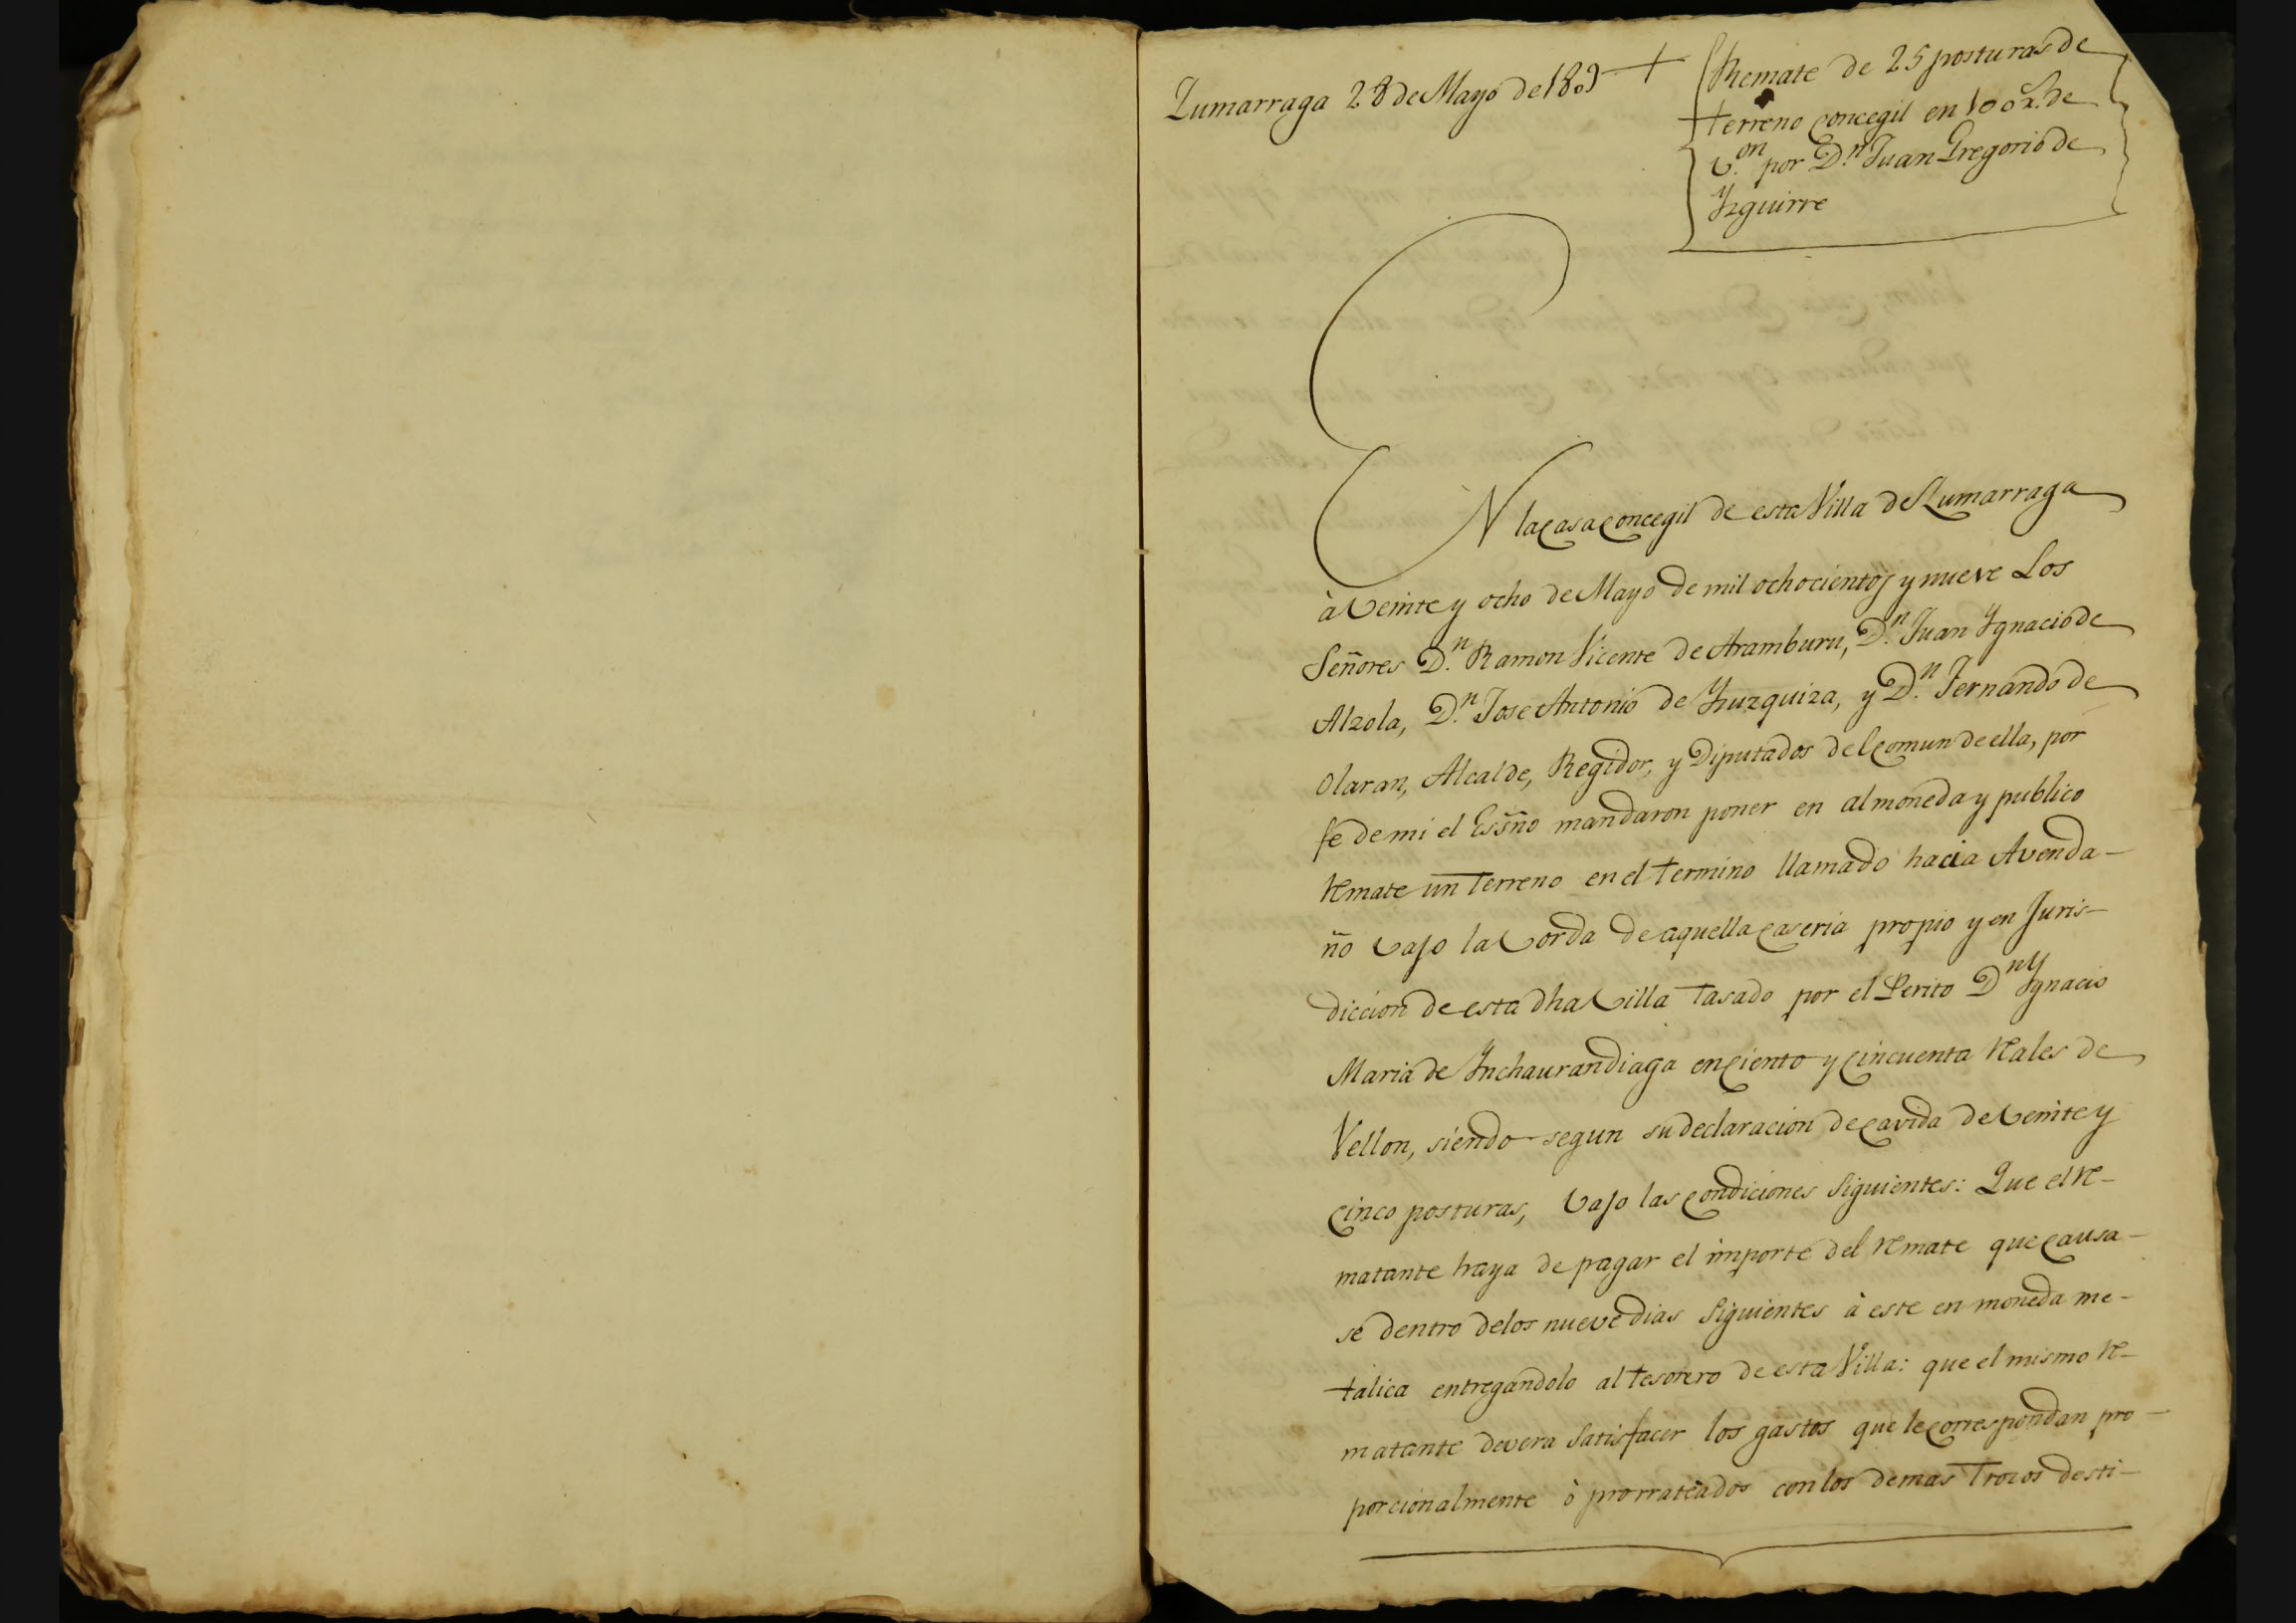 Zumarraga 28 de Mayo de 1809 +
Remate de 25 posturas de
terreno concegil en 100 r.s de
v.on por D.n Juan Gregorio de
Yzguirre
EN la casa concegil de esta Villa de Zumarraga
à veinte y ocho de Mayo de mil ochocientos y nueve Los
Señores D.n Ramon Vicente de Aramburu, D.n Juan Ygnacio de
Alzola, D.n Jose Antonio de Yzuzquiza, y D.n Fernando de
Olaran, Alcalde, Regidor, y Diputados del comun de ella, por
fe de mi el Essño mandaron poner en almoneda y publico
remate un Terreno en el termino llamado hacia Avenda-
ño vajo la vorda de aquella caseria propio y en Juris-
diccion de esta dha villa tasado por el Perito D.n Ygnacio
Maria de Ynchaurandiaga en ciento y cincuenta reales de
Vellon, siendo segun su declaracion de cavida de veinte y
cinco posturas, vajo las condiciones siguientes: Que el re-
matante haya de pagar el importe del remate que causa-
se dentro de los nueve dias siguientes à este en moneda me-
talica entregandolo al tesorero de esta Villa: que el mismo re-
matante devera satisfacer los gastos que le correspondan pro-
porcionalmente ò prorrateados con los demas Trozos desti-